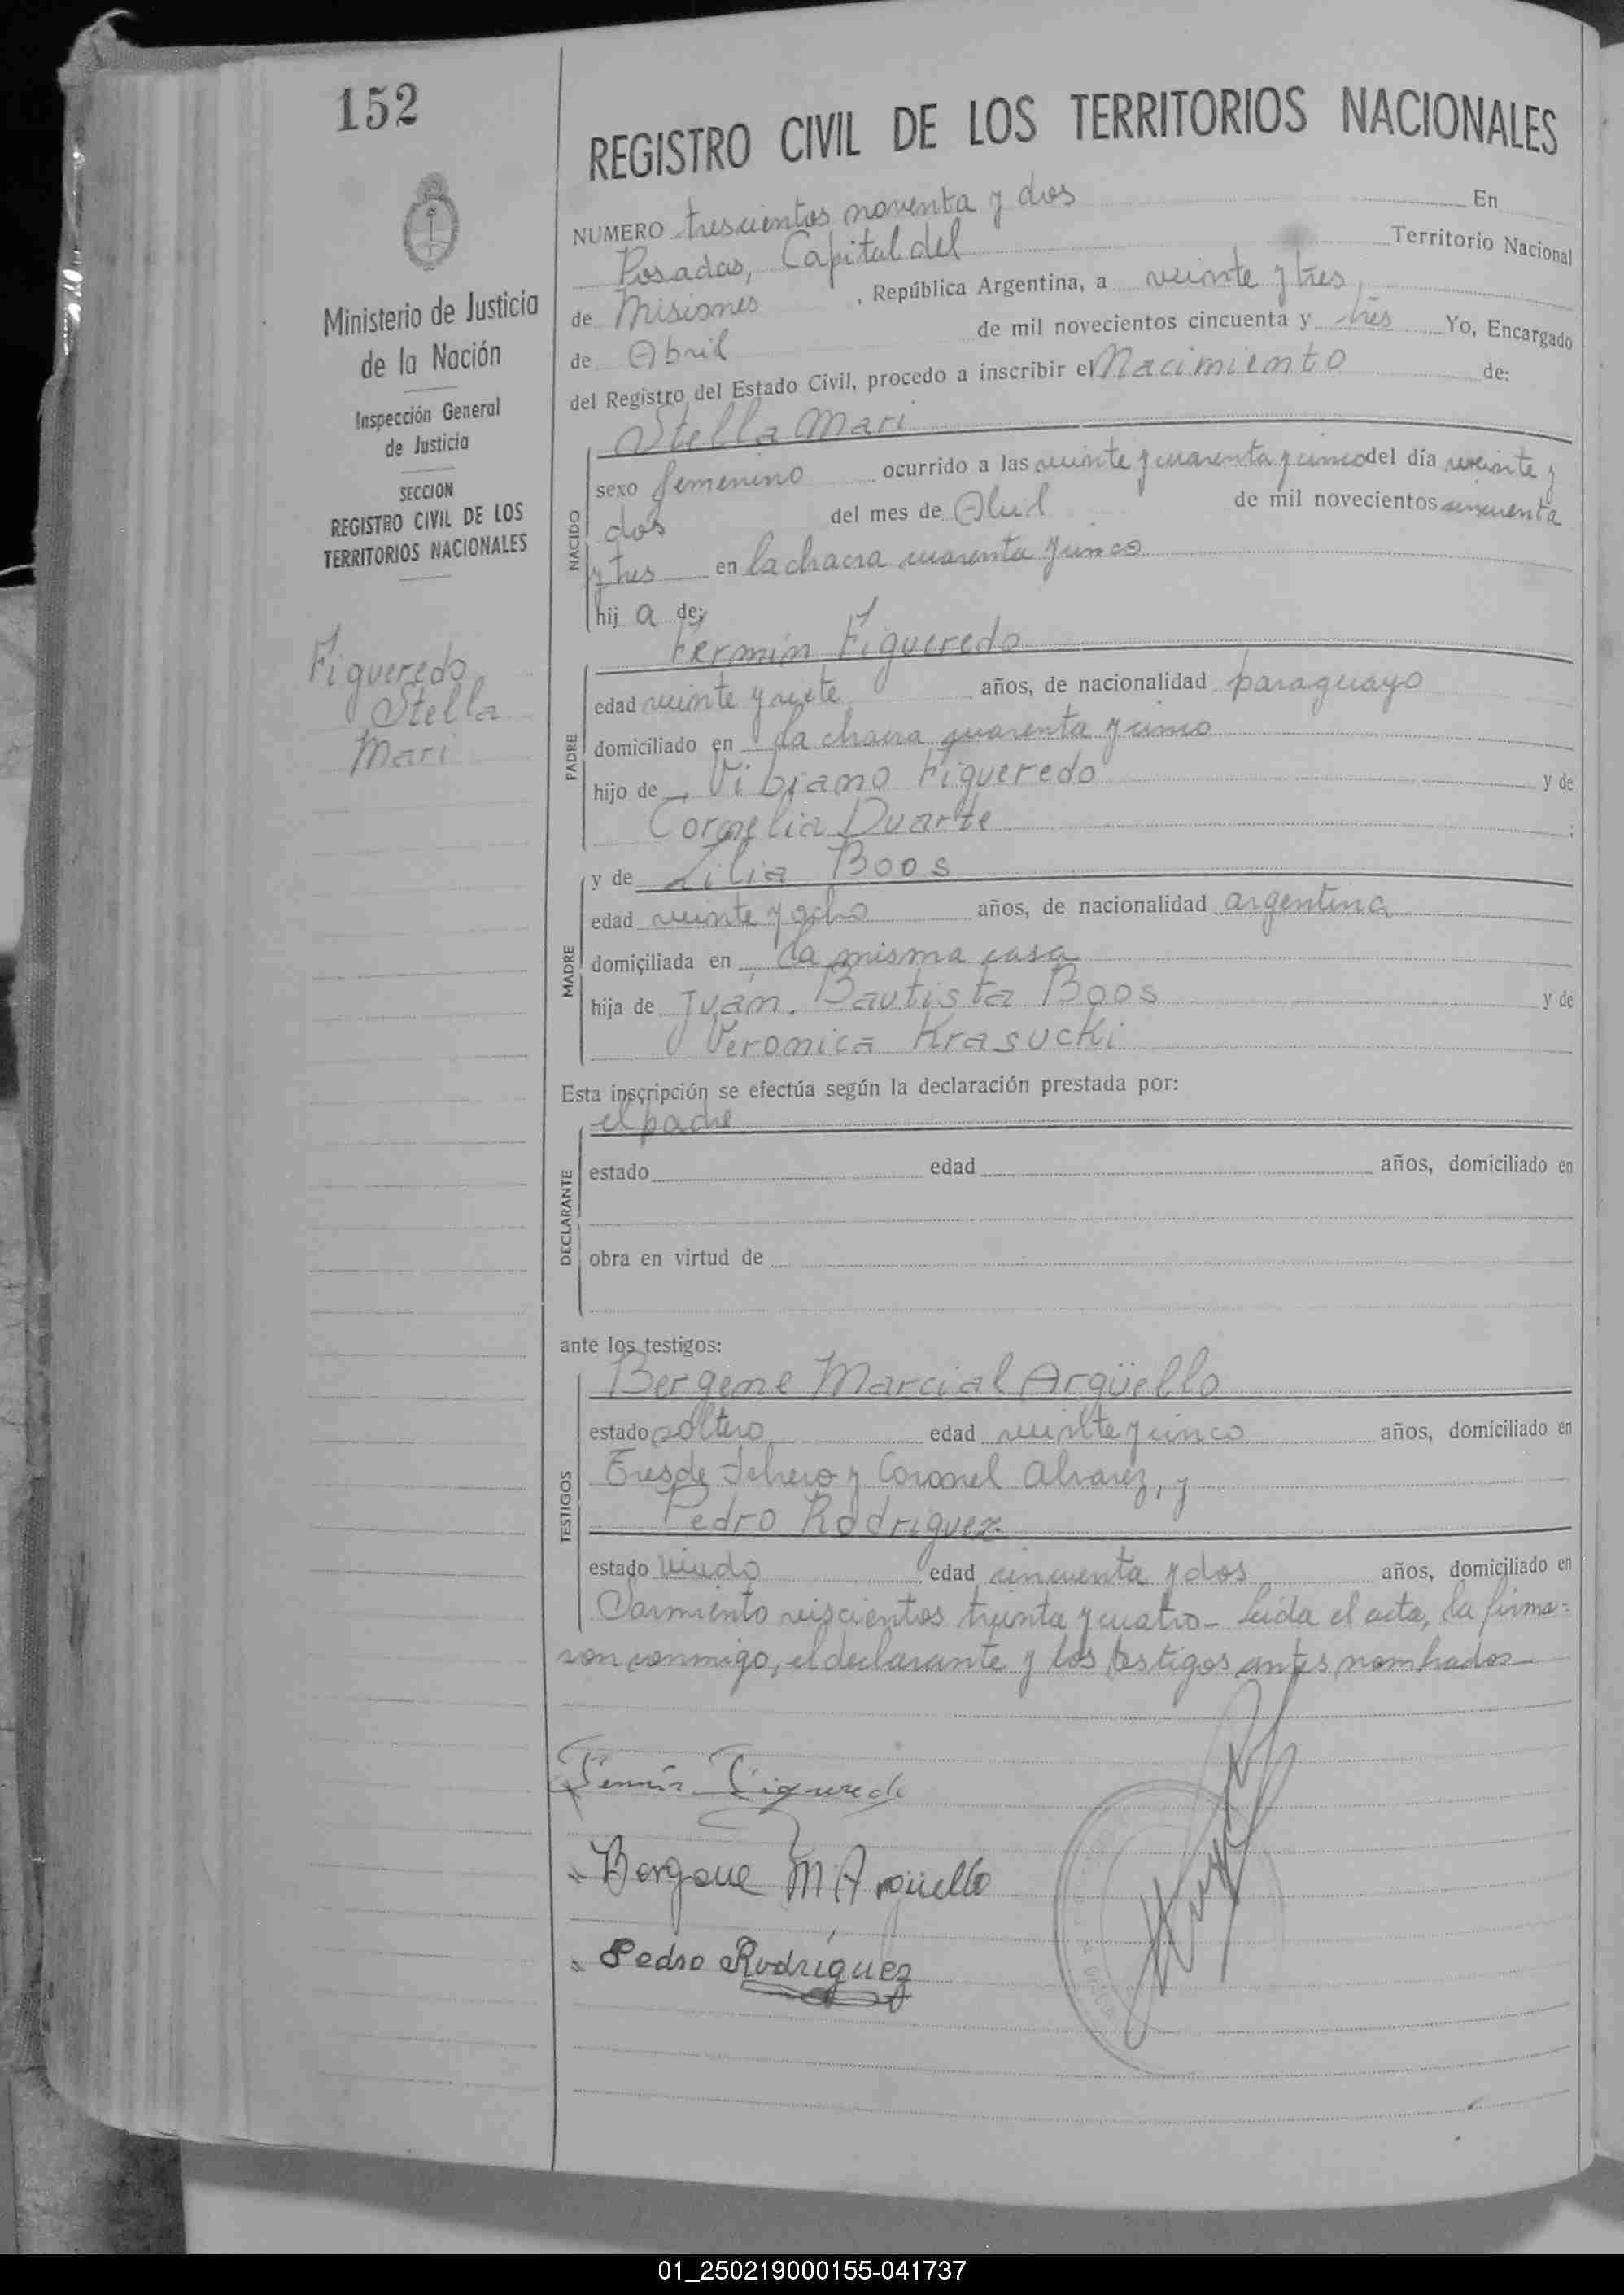 152
REGISTRO CIVIL DE LOS TERRITORIOS NACIONALES
Ministerio de Justicia
de la Nación
Inspección General
de Justicia
SECCION
REGISTRO CIVIL DE LOS
TERRITORIOS NACIONALES
Figueredo
Stella
Mari
NUMERO trescientos noventa y dos En
Posadas, Capital del Territorio Nacional
de Misiones, República Argentina, a veinte y tres
de Abril de mil novecientos cincuenta y tres Yo, Encargado
del Registro del Estado Civil, procedo a inscribir el Nacimiento de:
Stella Mari
NACIDO
sexo femenino ocurrido a las veinte y cuarenta y cinco del día veinte y
dos del mes de Abril de mil novecientos cincuenta
y tres en la chacra cuarenta y cinco
hij a de:
Fermin Figueredo
PADRE
edad veinte y siete años, de nacionalidad paraguayo
domiciliado en la chacra cuarenta y cinco
hijo de Vibiano Figueredo y de
Cornelia Duarte ;
y de Lilia Boos
MADRE
edad veinte y ocho años, de nacionalidad argentina
domiciliada en la misma casa
hija de Juan Bautista Boos y de
Veronica Krasucki
Esta inscripción se efectúa según la declaración prestada por:
el padre
DECLARANTE
estado edad años, domiciliado en
obra en virtud de
ante los testigos:
Bergene Marcial Argüello
TESTIGOS
estado soltero edad veinte y cinco años, domiciliado en
Tres de Febrero y Coronel Alvarez, y
Pedro Rodriguez
estado viudo edad cincuenta y dos años, domiciliado en
Sarmiento seiscientos treinta y cuatro - Leida el acta, la firma=
ron conmigo, el declarante y los testigos antes nombrados
Fermín Figueredo
Bergene M Argüello
Pedro Rodríguez
01_250219000155-041737